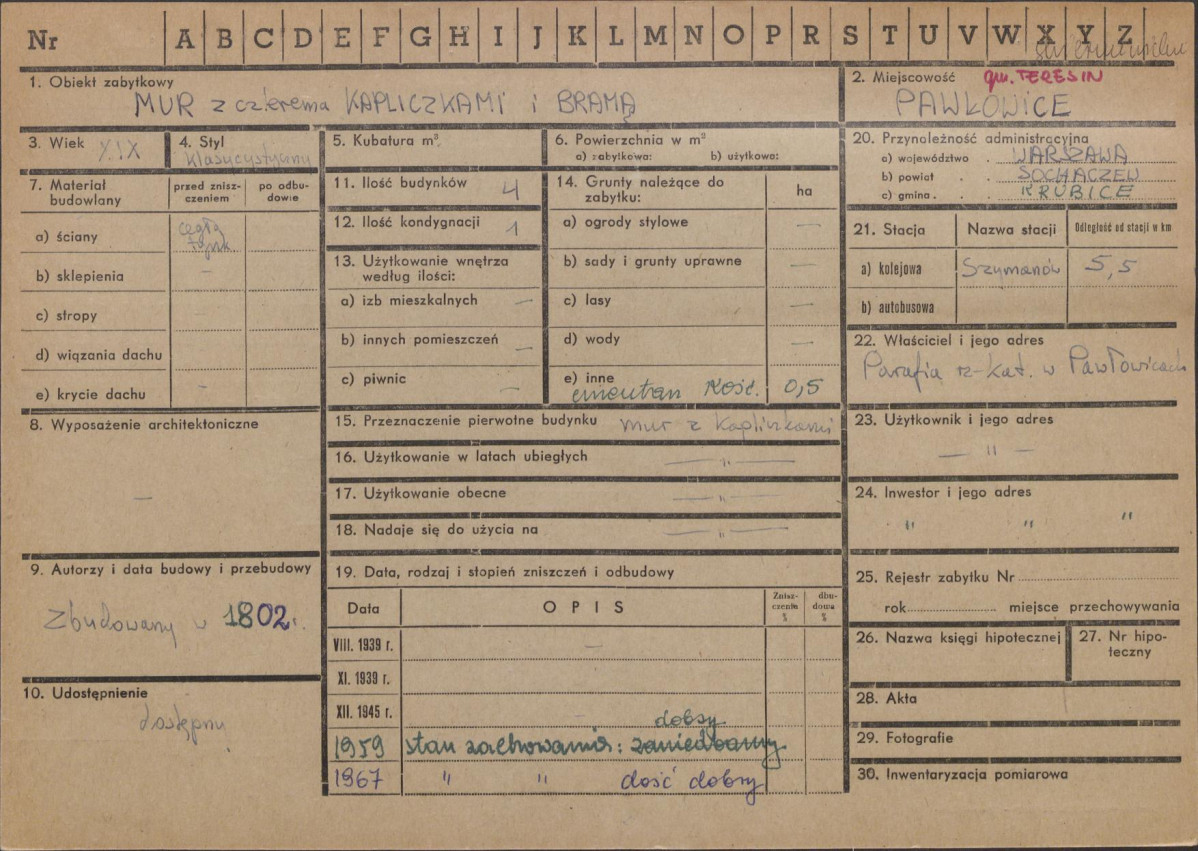 Nr A B C D E F G H I J K L M N O P R S T U V W X Y Z
1. Obiekt zabytkowy
MUR z czterema KAPLICZKAMI i BRAMĄ
2. Miejscowość gm. TERESIN
PAWŁOWICE
3. Wiek XIX
4. Styl
klasycystyczny
5. Kubatura m³
6. Powierzchnia w m²
a) zabytkowa: b) użytkowa:
20. Przynależność administracyjna
a) województwo . WARSZAWA
b) powiat . . SOCHACZEW
c) gmina . . . KRUBICE
7. Materiał budowlany
przed zniszczeniem
po odbudowie
a) ściany cegła tynk
b) sklepienia –
c) stropy
d) wiązania dachu
e) krycie dachu –
11. Ilość budynków 4
12. Ilość kondygnacji 1
13. Użytkowanie wnętrza
według ilości:
a) izb mieszkalnych –
b) innych pomieszczeń –
c) piwnic –
14. Grunty należące do
zabytku:
ha
a) ogrody stylowe –
b) sady i grunty uprawne –
c) lasy –
d) wody –
e) inne
cmentarz kość. 0,5
21. Stacja Nazwa stacji Odległość od stacji w km
a) kolejowa Szymanów 5,5
b) autobusowa
22. Właściciel i jego adres
Parafia rz-kat. w Pawłowicach
8. Wyposażenie architektoniczne
–
15. Przeznaczenie pierwotne budynku mur z kapliczkami
16. Użytkowanie w latach ubiegłych — " —
17. Użytkowanie obecne — " —
18. Nadaje się do użycia na — " —
23. Użytkownik i jego adres
— " —
24. Inwestor i jego adres
" " "
9. Autorzy i data budowy i przebudowy
Zbudowany w 1802.
10. Udostępnienie
dostępny
19. Data, rodzaj i stopień zniszczeń i odbudowy
Data OPIS Zniszczenie % dbudowa %
VIII. 1939 r. –
XI. 1939 r.
XII. 1945 r. –
dobry
1959 stan zachowania: zaniedbany
1967 " " dość dobry
25. Rejestr zabytku Nr
rok miejsce przechowywania
26. Nazwa księgi hipotecznej
27. Nr hipoteczny
28. Akta
29. Fotografie
30. Inwentaryzacja pomiarowa